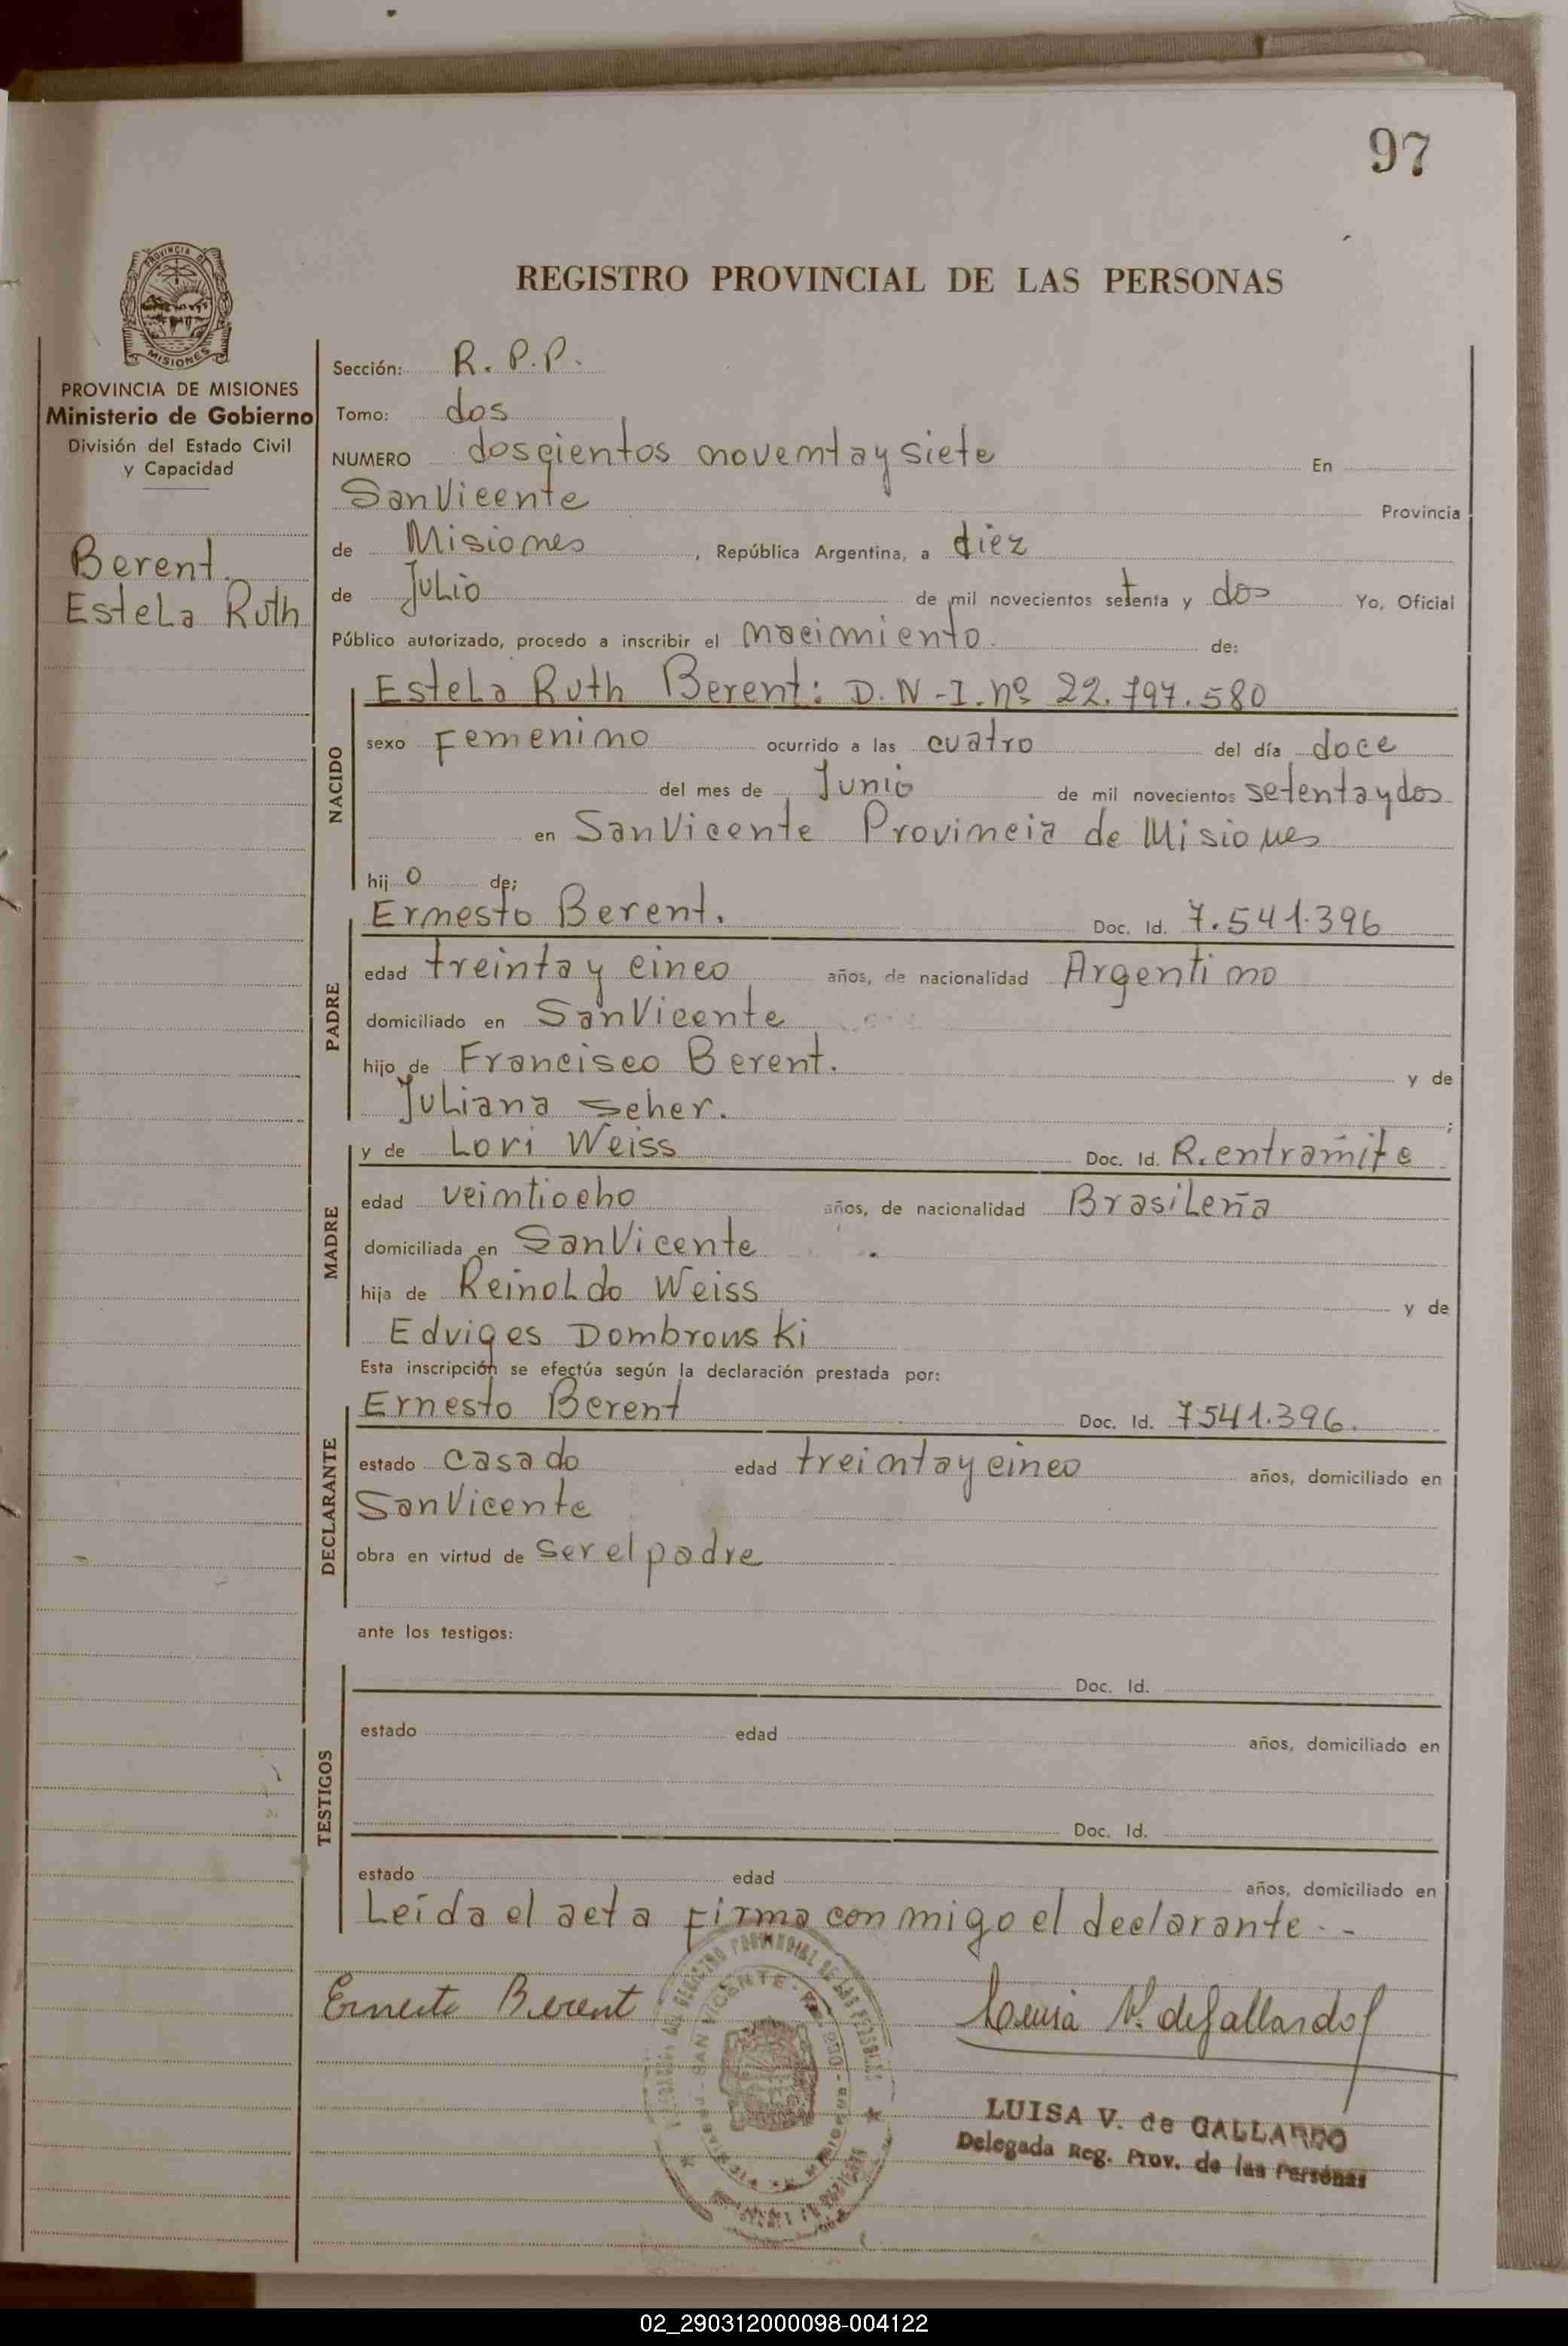 97
REGISTRO PROVINCIAL DE LAS PERSONAS
PROVINCIA DE
MISIONES
PROVINCIA DE MISIONES
Ministerio de Gobierno
División del Estado Civil
y Capacidad
Berent.
Estela Ruth
Sección: R. P. P.
Tomo: dos
NUMERO doscientos noventa y siete En
San Vicente Provincia
de Misiones, República Argentina, a diez
de Julio de mil novecientos setenta y dos Yo, Oficial
Público autorizado, procedo a inscribir el nacimiento. de:
NACIDO
Estela Ruth Berent: D. N-I. nº 22.797.580
sexo Femenino ocurrido a las cuatro del día doce
del mes de Junio de mil novecientos setenta y dos
en San Vicente Provincia de Misiones
hij o de;
PADRE
Ernesto Berent. Doc. Id. 7.541.396
edad treinta y cinco años, de nacionalidad Argentino
domiciliado en San Vicente
hijo de Francisco Berent. y de
Juliana Seher. ;
MADRE
y de Lori Weiss Doc. Id. R. en tramite
edad veintiocho años, de nacionalidad Brasileña
domiciliada en San Vicente
hija de Reinoldo Weiss y de
Edviges Dombrowski
Esta inscripción se efectúa según la declaración prestada por:
DECLARANTE
Ernesto Berent Doc. Id. 7541.396.
estado casado edad treinta y cinco años, domiciliado en
San Vicente
obra en virtud de ser el padre
ante los testigos:
TESTIGOS
Doc. Id.
estado edad años, domiciliado en
Doc. Id.
estado edad años, domiciliado en
Leída el acta firma con migo el declarante.-
Ernesto Berent
Luisa V. de Gallardo
REGISTRO PROVINCIAL DE LAS PERSONAS
SAN VICENTE
LUISA V. de GALLARDO
Delegada Reg. Prov. de las Personas
02_290312000098-004122